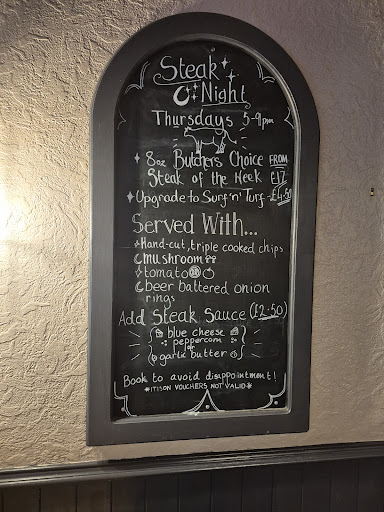 Steak
Night
Thursdays 5-9pm
8oz Butchers Choice FROM
Steak of the Week £17
Upgrade to Surf 'n' Turf - £4.50
Served With...
Hand-cut, triple cooked chips
mushroom
tomato
beer battered onion
rings
Add Steak Sauce (£2.50)
blue cheese
peppercorn
or
garlic butter
Book to avoid disappointment!
*ITISON VOUCHERS NOT VALID*